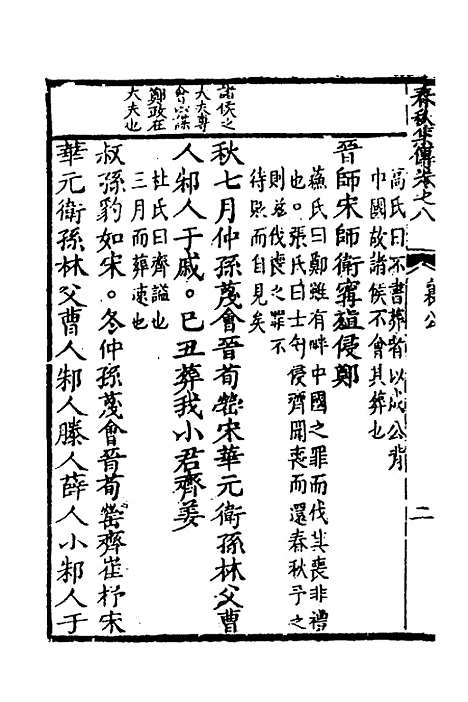 春秋集傳卷之八
襄公
二
高氏曰不書葬者以成公背
中國故諸侯不會其葬也
晉師宋師衛甯殖侵鄭
蘇氏曰鄭雖有畔中國之罪而伐其喪非禮
也。張氏曰士匄侵齊聞喪而還春秋予之
則並伐喪之罪不
待貶而自見矣
秋七月仲孫蔑會晉荀罃宋華元衛孫林父曹
人邾人于戚。己丑葬我小君齊姜
杜氏曰齊謚也
三月而葬速也
叔孫豹如宋。冬仲孫蔑會晉荀罃齊崔杼宋
華元衛孫林父曹人邾人滕人薛人小邾人于
諸侯之
大夫專
會以謀
鄭政在
大夫也